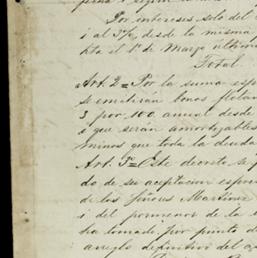 Por intereses solo del
i al 3%, desde la misma
hta el 1º de Marzo ultimo
Total
Art. 2 = Por la suma esp
se emitiran bonos flotan
3 por 100 anual desde
i que serán amortizables
minos que toda la deuda
Art. 3º = Este decreto, si
do de su aceptacion espre
de los Señores Martinez
i del pormenor de la
ha tomado por punto d
arreglo definitivo del